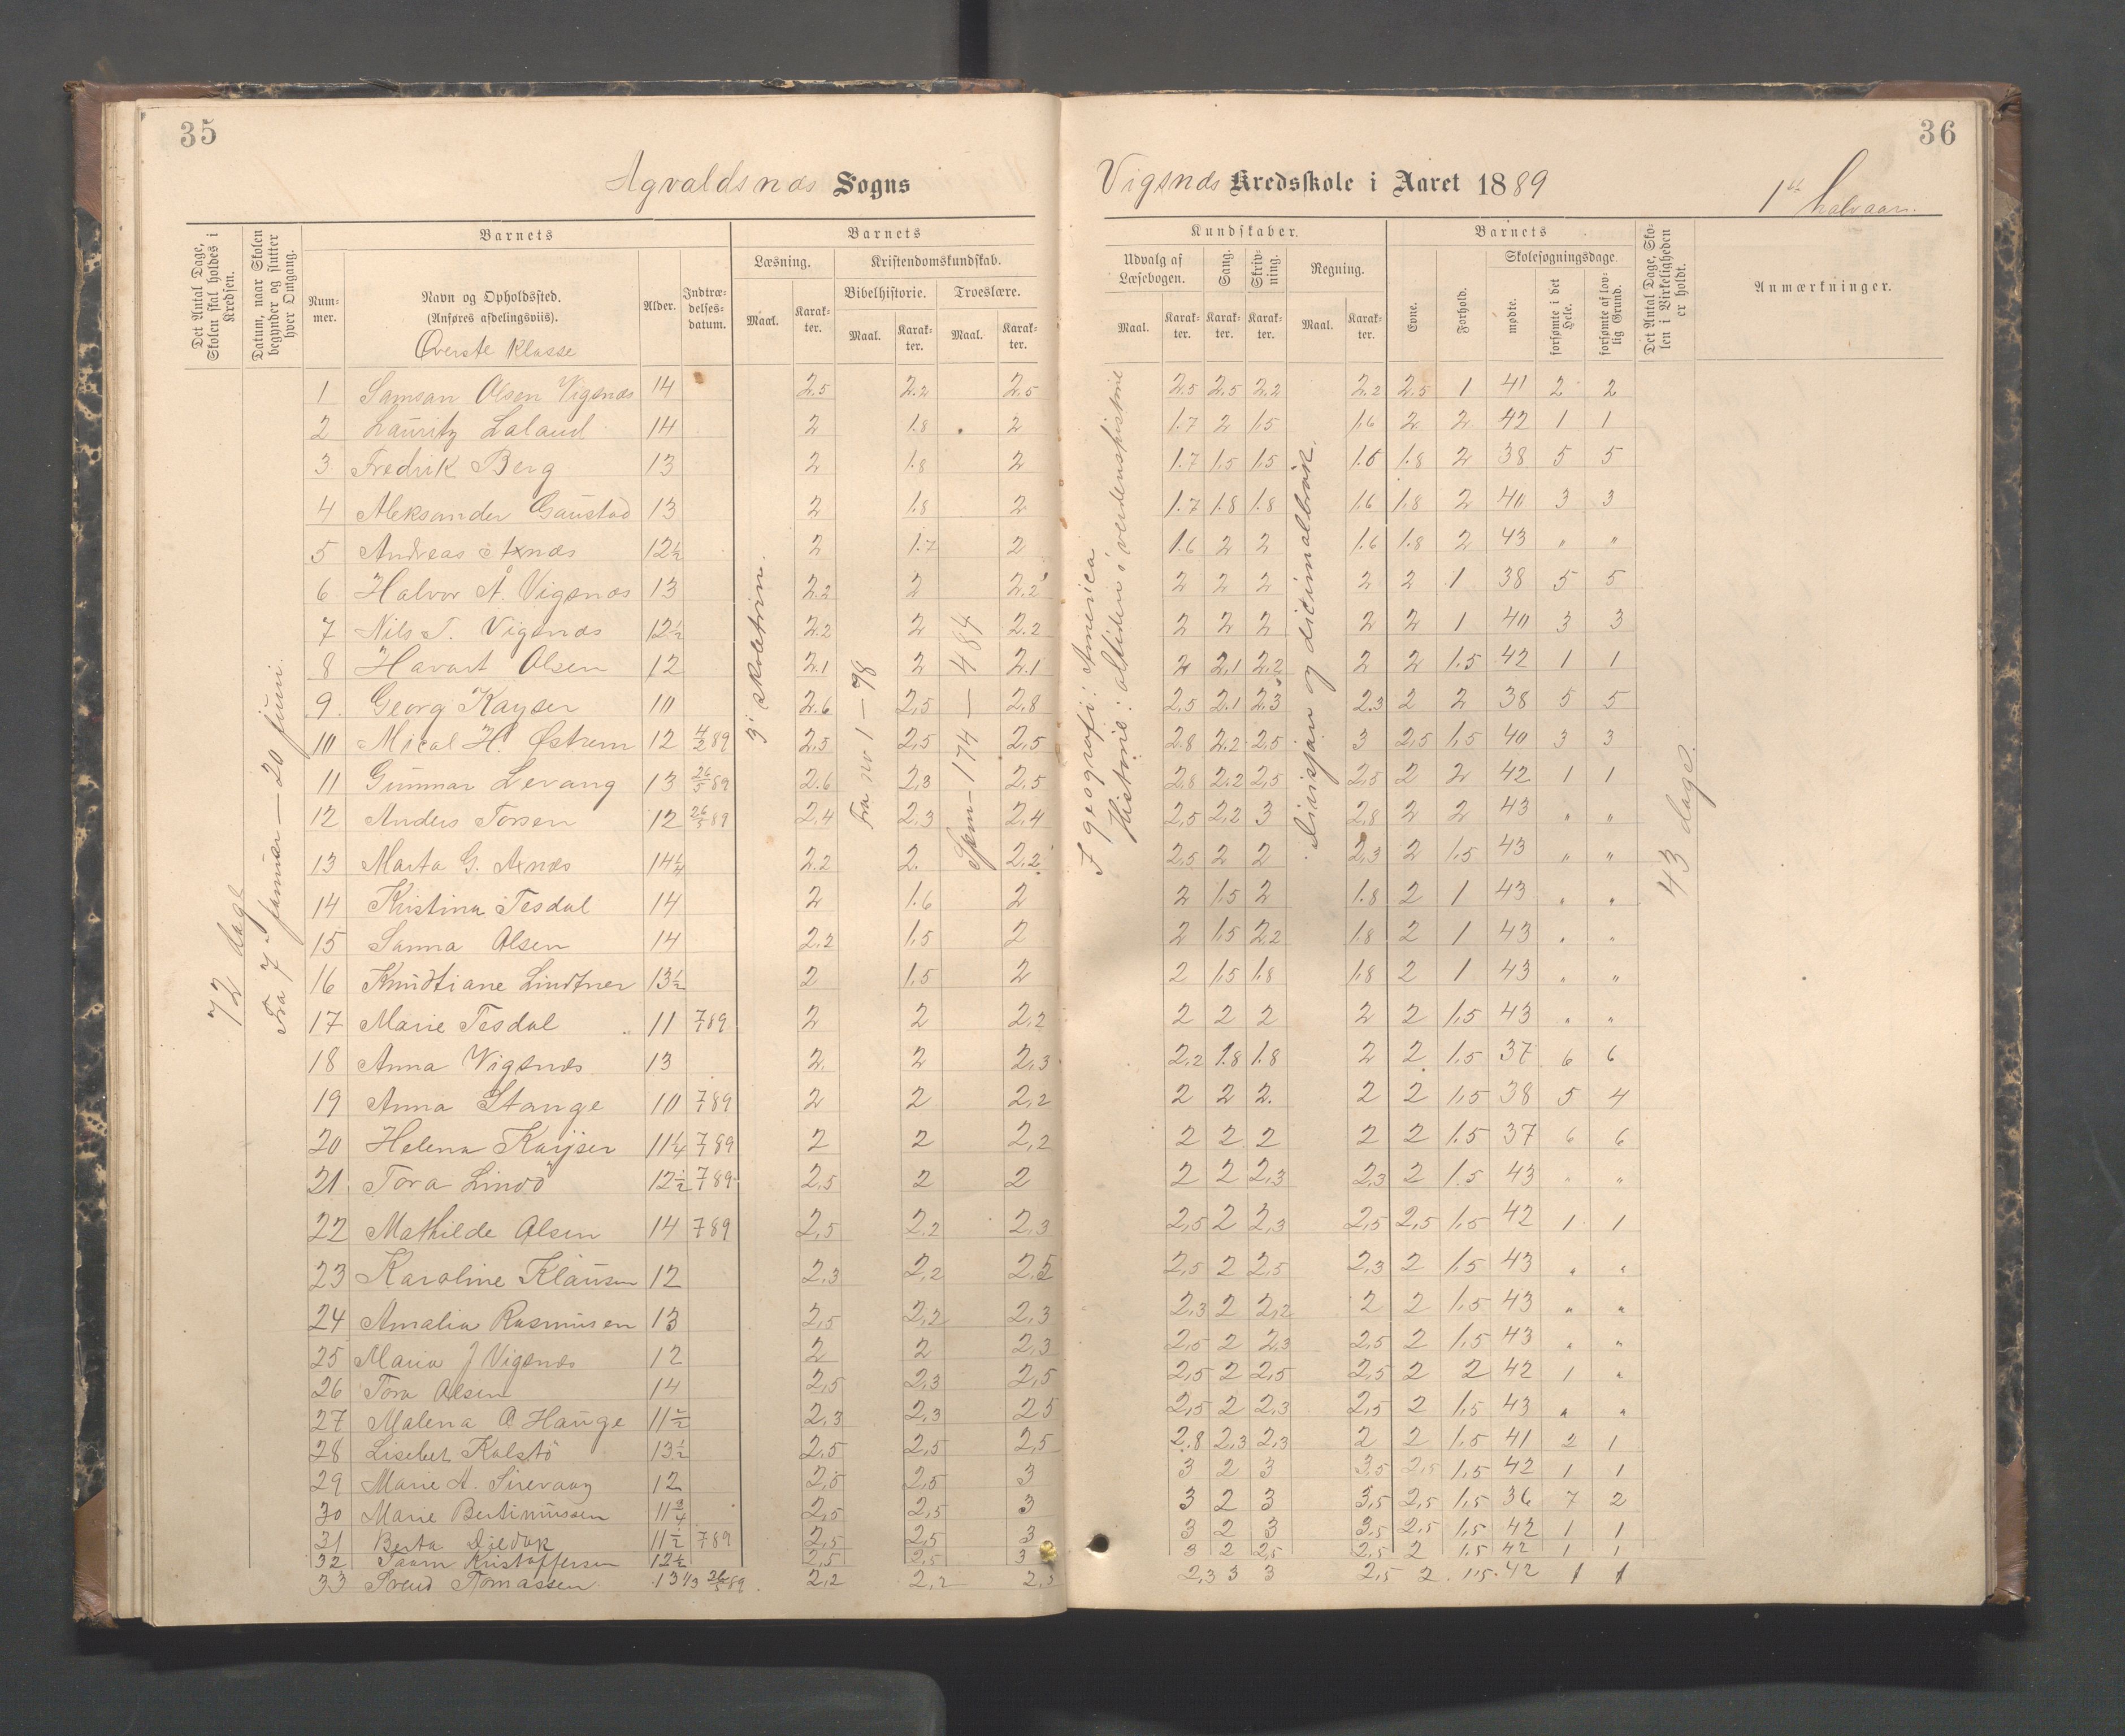 35
36
Agvaldsnæs Sogns
Vigsnæs Kredsskole i Aaret 1889
1st halvaar.
Det Antal Dage, Skolen skal holdes i Kredsen.
Datum, naar Skolen begynder og slutter hver Omgang.
Barnets
Num-mer.
Navn og Opholdssted.
(Anføres afdelingsviis).
Øverste Klasse
Alder.
Indtræ-delses-datum.
Barnets
Læsning.
Kristendomskundskab.
Bibelhistorie.
Troeslære.
Maal. Karak-ter. Maal. Karak-ter. Maal. Karak-ter.
Kundskaber.
Udvalg af Læsebogen.
Sang.
Skriv-ning.
Regning.
Maal. Karak-ter. Karak-ter. Karak-ter. Maal. Karak-ter.
Barnets
Evne.
Forhold.
Skolesøgningsdage.
mødte.
forsømte i det Hele.
forsømte af lov-lig Grund.
Det Antal Dage, Sko-len i Virkeligheden er holdt.
Anmærkninger.
72 dage
Fra 7 januar — 20 juni.
3' skoletrin.
Fra no 1 — 78
Spm — 174 — 484
I geografi: America
Historie: oldtiden i verdenshistorie
Divisjon og dicimalbrøk.
43 dage.
1 Samson Olsen Vigsnæs 14 2.5 2.2 2.5 2.5 2.5 2.2 2.2 2.5 1 41 2 2
2 Lauritz Laland 14 2 1.8 2 1.7 2 1.5 1.6 2 2 42 1 1
3 Fredrik Berg 13 2 1.8 2 1.7 1.5 1.5 1.6 1.8 2 38 5 5
4 Aleksander Gaustad 13 2 1.8 2 1.7 1.8 1.8 1.6 1.8 2 40 3 3
5 Andreas Axnæs 12½ 2 1.7 2 1.6 2 2 1.6 1.8 2 43 " "
6 Halvor A. Vigsnæs 13 2.2 2 2.2 2 2 2 2 2 1 38 5 5
7 Nils T. Vigsnæs 12½ 2.2 2 2.2 2 2 2 2 2 1 40 3 3
8 Havart Olsen 12 2.1 2 2.1 2 2.1 2.2 2 2 1.5 42 1 1
9. Georg Kayser 10 2.6 2,5 2.8 2,5 2.1 2.3 2.3 2 2 38 5 5
10 Mical H. Østrem 12 4/2 89 2,5 2,5 2,5 2.8 2.2 2,5 3 2,5 1,5 40 3 3
11 Gunnar Levang 13 26/5 89 2.6 2,3 2,5 2.8 2.2 2,5 2,5 2 2 42 1 1
12 Anders Torsen 12 26/5 89 2,4 2.3 2,4 2,5 2,2 3 2,8 2 2 43 " "
13 Marta G. Axnæs 14¼ 2.2 2. 2.2 2,5 2 2 2,3 2 1.5 43 " "
14 Kristina Tesdal 14 2 1.6 2 2 1.5 2 1.8 2 1 43 " "
15 Sanna Olsen 14 2.2 1,5 2 2 1,5 2,2 1.8 2 1 43 " "
16 Knudtiane Lindtner 13½ 2 1,5 2 2 1,5 1.8 1,8 2 1 43 " "
17 Marie Tesdal 11 7/7 89 2 2 2,2 2 2 2 2 2 1,5 43 " "
18 Anna Vigsnæs 13 2. 2 2,3 2,2 1.8 1.8 2 2 1.5 37 6 6
19 Anna Stange 10 7/7 89 2 2 2,2 2 2 2. 2 2 1,5 38 5 4
20 Helena Kayser 11¼ 7/7 89 2 2 2,2 2 2 2 2 2 1.5 37 6 6
21 Tora Lindö 12½ 7/7 89 2,5 2 2 2 2 2,3 2,3 2 1.5 43 " "
22 Mathilde Olsen 14 7/7 89 2,5 2.2 2,3 2,5 2 2,3 2,5 2,5 1,5 42 1 1
23 Karoline Klausen 12 2,3 2,2 2,5 2,5 2 2,5 2,3 2 1,5 43 " "
24 Amalia Rasmusen 13 2,5 2,2 2,3 2,3 2 2,2 2 2 1,5 43 " "
25 Maria J Vigsnæs 12 2 2 2,3 2,5 2 2,3 2,5 2 1,5 43 " "
26 Tora Olsen 14 2,5 2,3 2,5 2,5 2 2,5 2,5 2 2 42 1 "
27 Malena O Hauge 11½ 2,3 2,3 25 2,5 2 2,3 2,5 2 1,5 43 " "
28 Lisebet Kolstö 13½ 2,5 2,5 2,5 2.8 2,3 2,3 2 2 1,5 41 2 1
29 Marie A. Sirevaag 12 2,5 2,5 3 3 2 3 3,5 2,5 1,5 42 1 1
30 Marie Bertinussen 11¾ 2,5 2,5 3 3 2 3 3,5 2,5 1,5 36 7 2
31 Berta 11½ 789 2,5 2,5 3 3 2 3 3,5 2,5 1,5 42 1 1
32 Kristoffersen 12½ 2,5 2,5 3 3 2 2,5 2,5 2 1,5 42 1 1
33 Svend Tomassen 13 1/3 26/5 89 2,2 2,2 2,3 3 3 2,5 2 1.5 42 1 1